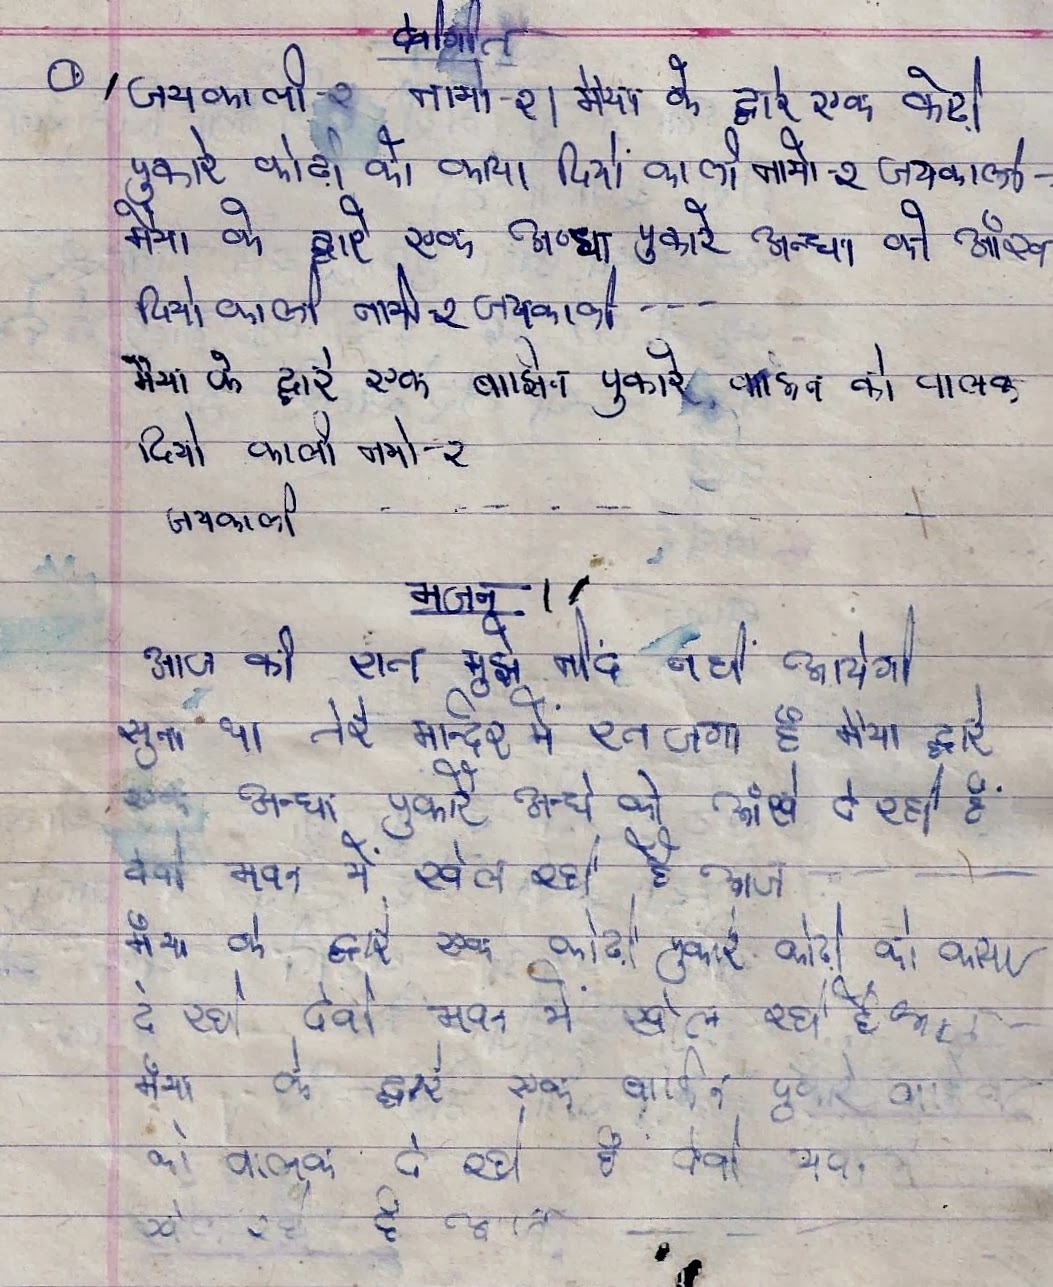 देवीगीत
① जयकाली-२ नामो-२। मैया के द्वारे एक कोढ़ी
पुकारे कोढ़ी को काया दियो काली नामो-२ जयकाली-
मैया के द्वारे एक अन्धा पुकारे अन्धा को आँख
दियो काली नामो-२ जयकाली ---
मैया के द्वारे एक बाझिन पुकारे बाझिन को वालक
दियो काली नमो-२
जयकाली - - - - - -
भजन-1
आज की रात मुझे नींद नहीं आयेगी
सुना था तेरे मन्दिर में रत जगा है मैया द्वारे
एक अन्धा पुकारे अन्धे को आँखे दे रही है
देवी भवन में खेल रही है आज - - -
मैया के द्वारे एक कोढ़ी पुकारे कोढ़ी को काया
दे रही देवी भवन में खेल रही है आज -
मैया के द्वारे एक बाझिन पुकारे
को वालक दे रही है देवी भवन
खेल रही है आज - - -